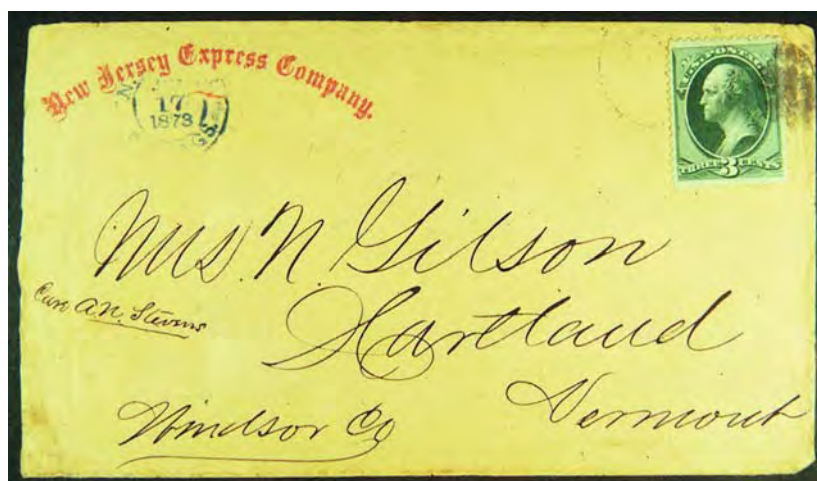 New Jersey Express Company.
17
1873
U.S. POSTAGE
THREE 3 CENTS
Mrs N. Gilson
Care A.N. Stevens
Hartland
Vermont
Windsor Co